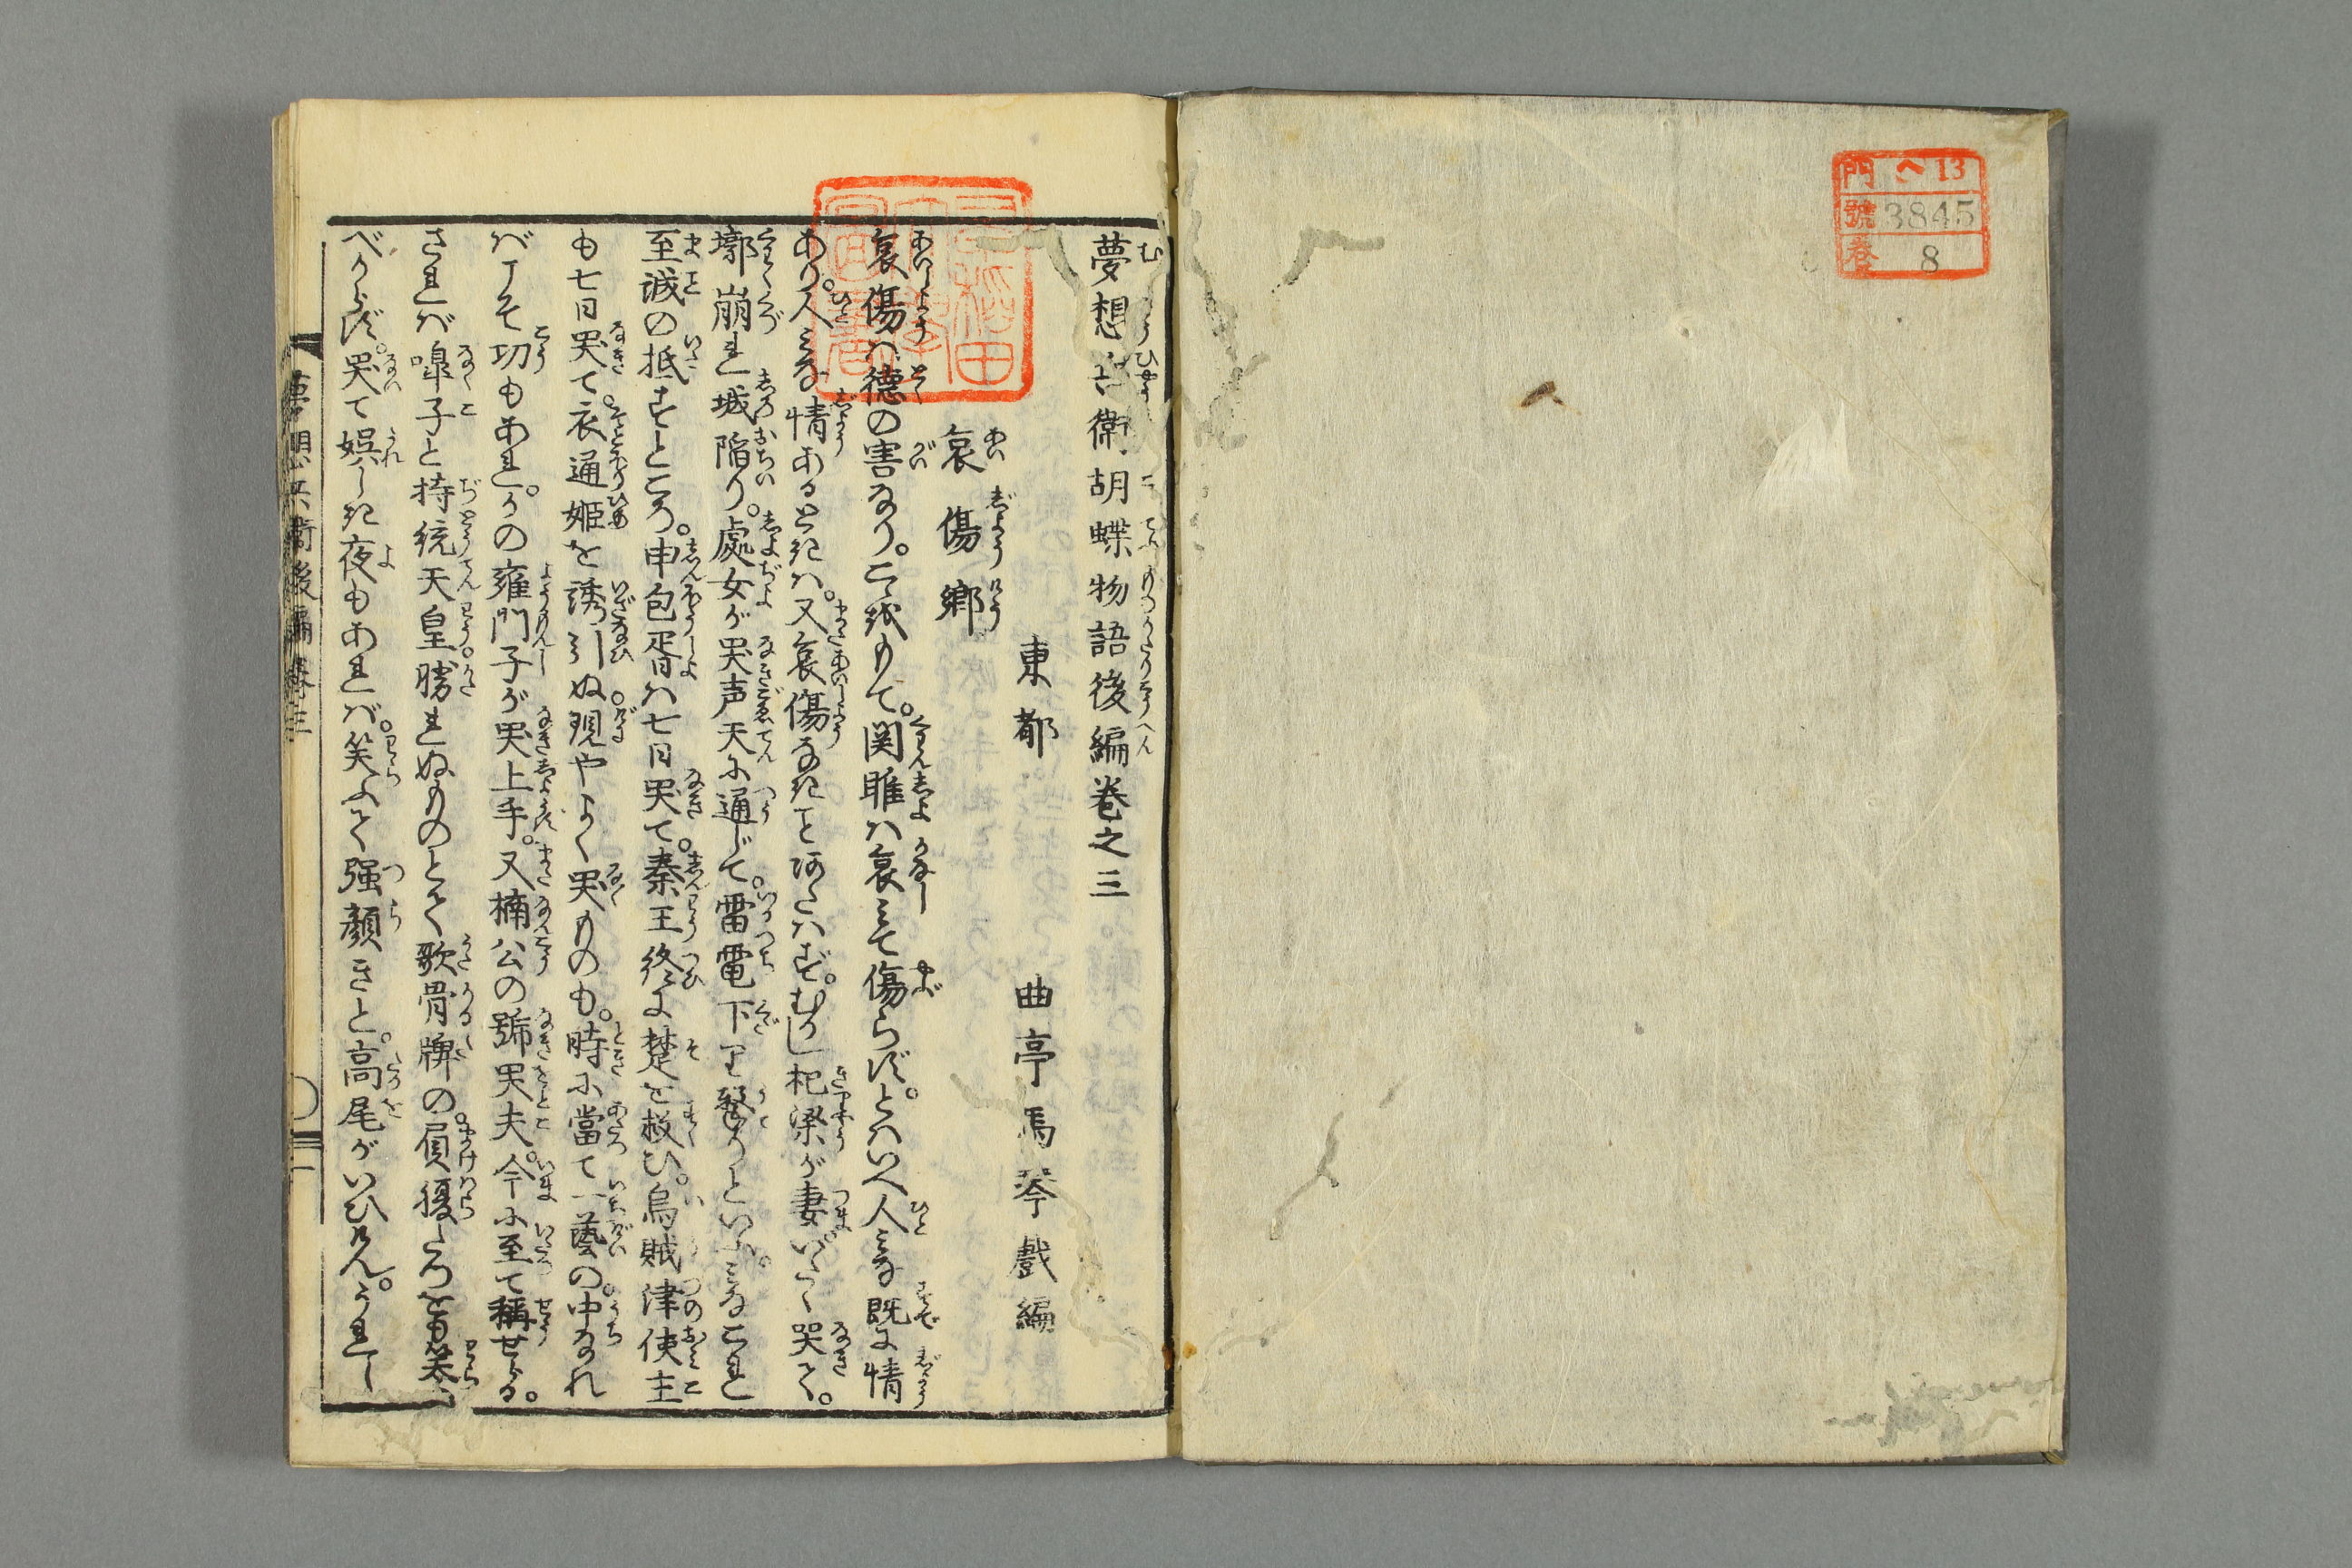 門 ヘ13
號 3845
巻 8
夢想兵衛胡蝶物語後編卷之三
東都 曲亭馬琴戲編
哀傷郷
哀傷ハ德の害なり。こゝをもて。関雎ハ哀みて傷らず。とハいへ人みな既に情
あり。人みな情あるときハ。又哀傷なきことあたハず。むかし杞梁が妻いたく哭て。
墎崩れ城陥り。處女が哭声天に通じて。雷電下り撃しといふ。みなこれ
至誠の抵すところ。申包胥ハ七日哭て。秦王終に楚を救ひ。烏賊津使主
も七日哭て。衣通姫を誘引ぬ。現やよく哭ものも。時に當て一藝の中なれ
バこそ功もあれ。かの雍門子が哭上手。又楠公の號哭夫。今に至て稱せらる。
されバ嘷子と持統天皇。勝れぬものとて歌骨牌の。屓腹たつをも笑ふ
べからず。哭て娯しき夜もあれバ。笑ふて强顔きと。高尾がいひけん。うれし
夢想兵衛後編 卷三
一